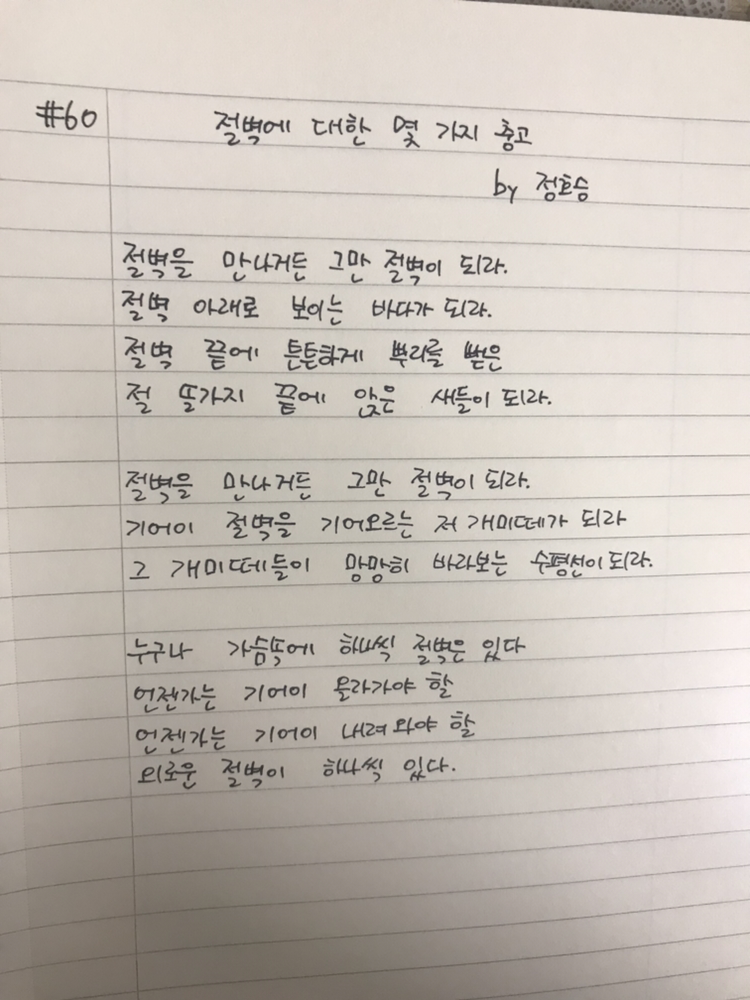 #60
절벽에 대한 몇 가지 충고
by 정호승
절벽을 만나거든 그만 절벽이 되라.
절벽 아래로 보이는 바다가 되라.
절벽 끝에 튼튼하게 뿌리를 뻗은
절 똘가지 끝에 앉은 새들이 되라.
절벽을 만나거든 그만 절벽이 되라.
기어이 절벽을 기어오르는 저 개미떼가 되라
그 개미떼들이 망망히 바라보는 수평선이 되라.
누구나 가슴속에 하나씩 절벽은 있다
언젠가는 기어이 올라가야 할
언젠가는 기어이 내려와야 할
외로운 절벽이 하나씩 있다.